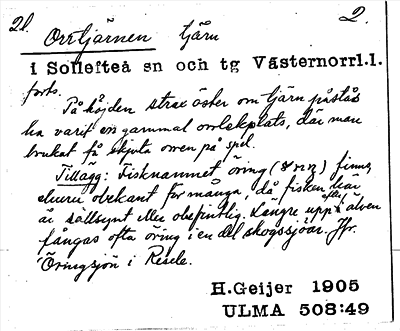 21. Orrtjärnen tjärn 2.
i Sollefteå sn och tg Västernorrl.l.
forts.
På höjden strax öster om tjärn påstås
ha varit en gammal orrlekplats, där man
brukat få skjuta orren på spel.
Tillägg: Fisknamnet öring ( ) finns
ehuru obekant för många, då fisken här
är sällsynt eller obefintlig. Längre upp efter älven
fångas ofta öring i en del skogssjöar. Jfr.
Öringsjön i Resele.
H.Geijer 1905
ULMA 508:49